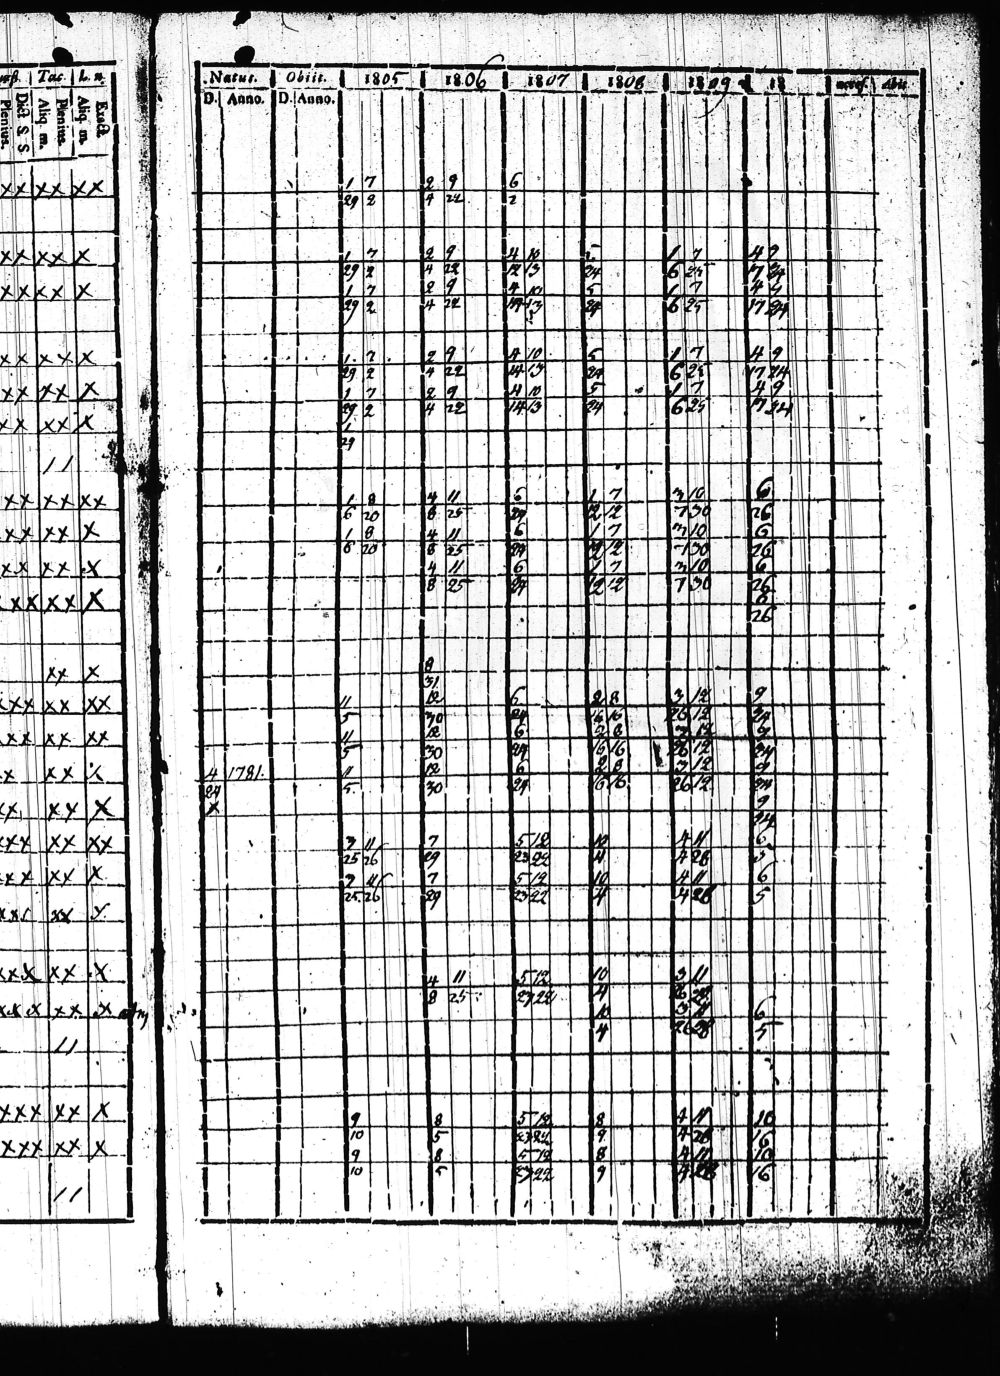 Tac. L. n.
Natus. Obiit. 1805 1806 1807 1808 1809 18
D. Anno. D. Anno.
Plenius. Dict S S Aliq. m. Plenius. Aliq. m. Exact
xx xx xx 1 7 2 9 6
29 2 4 22 2
xx xx x 1 7 2 9 4 10 5 1 7 4 9
29 2 4 22 12 13 24 6 25 17 24
xx xx x 1 7 2 9 4 10 5 1 7 4 9
29 2 4 22 14 13 24 6 25 17 24
xx xx x 1 7 2 9 4 10 5 1 7 4 9
29 2 4 22 14 13 24 6 25 17 24
xx xx x 1 7 2 9 4 10 5 1 7 4 9
29 2 4 22 14 13 24 6 25 17 24
xx xx x 1
29
11
xx xx xx 1 8 4 11 6 1 7 3 10 6
6 20 8 25 24 12 12 7 30 26
xxx xx x 1 8 4 11 6 1 7 3 10 6
6 20 8 25 24 12 12 7 30 26
xx xx x 4 11 6 1 7 3 10 6
8 25 24 12 12 7 30 26
xxx xx x 6
26
xx x 8
31
xxx xx xx 11 12 6 2 8 3 12 9
5 30 24 16 16 26 12 24
xxx xx xx 11 12 6 2 8 3 12 9
5 30 24 16 16 26 12 24
xx xx x 4 1781. 11 12 6 2 8 3 12 9
24 5 30 24 16 16 26 12 24
xx xx x x 9
24
xxx xx xx 3 11 7 5 12 10 4 11 6
25 26 29 23 22 4 4 28 5
xxx xx x 3 11 7 5 12 10 4 11 6
25 26 29 23 22 4 4 28 5
xxx xx x
xxx xx x 4 11 5 12 10 3 11
8 25 23 22 4 26 28
xxx xx x 10 3 11 6
4 26 28 5
11
xxx xx x 9 8 5 12 8 4 11 10
10 5 23 22 9 4 28 16
xxxx xx x 9 8 5 12 8 4 11 10
10 5 23 22 9 4 28 16
11